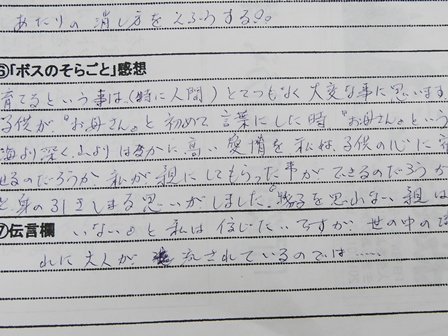 あたりの消し方をえふうする?。
⑥「ボスのそらごと」感想
育てるという事は、(特に人間)とてつもなく大変な事に思います
子供が、"お母さん"と初めて言葉にした時"お母さん"という
海より深く、山よりはるかに高い愛情を私は、子供の心に
るのだろうか 私が親にしてもらった事ができるのだろうか
身の引きしまる思いがしました。を思わない親は
⑦伝言欄 いない。と私は信じたいですが、世の中の
れに大人が流されているのでは……